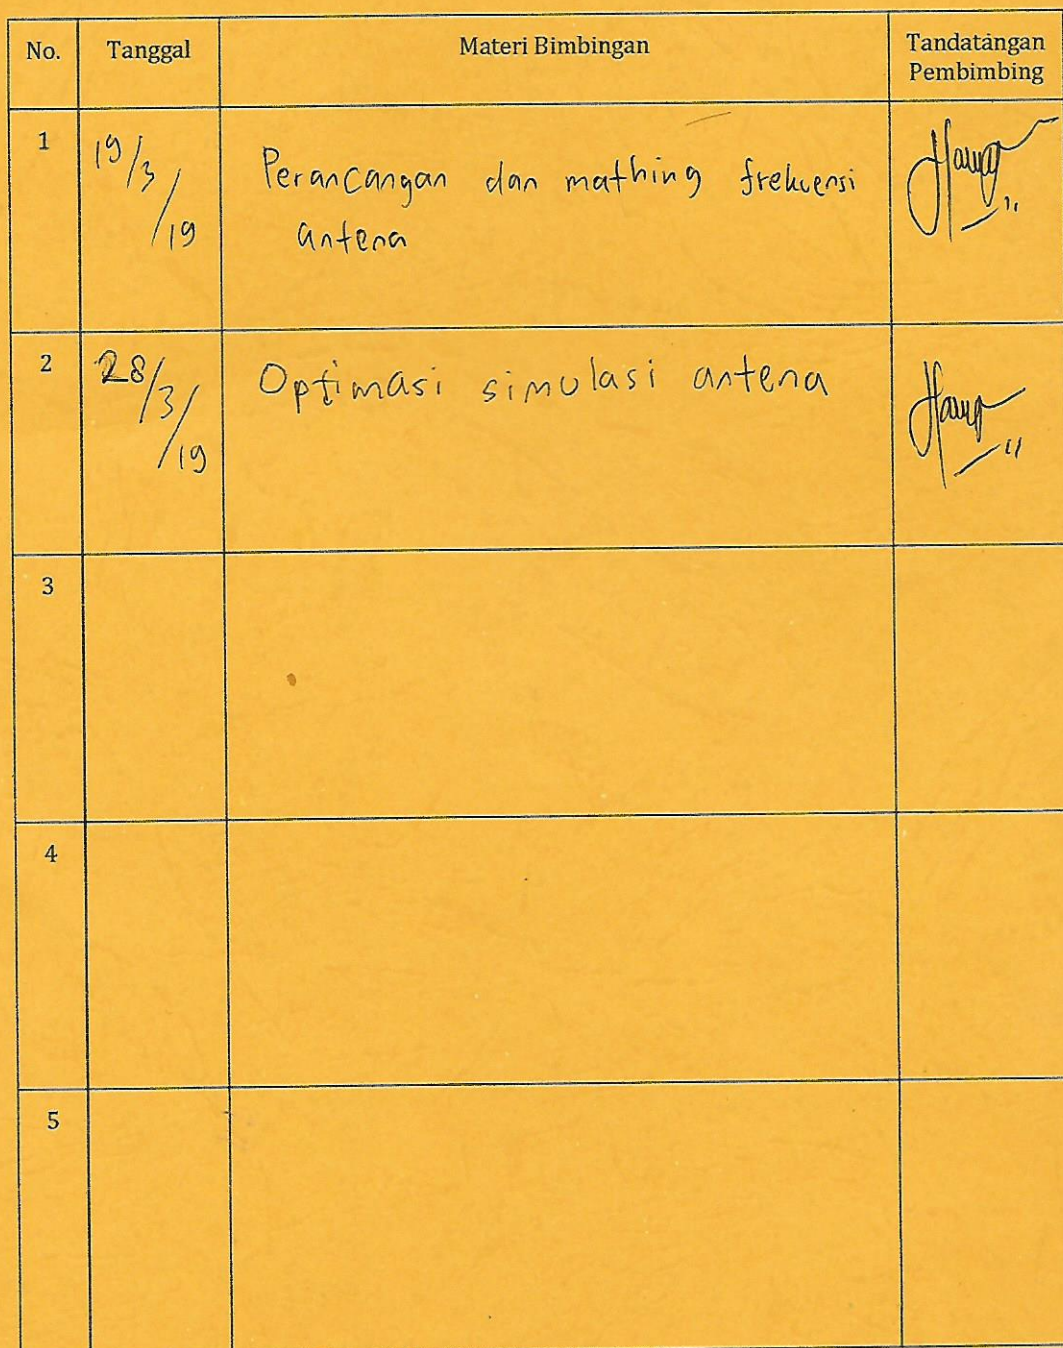 No. Tanggal Materi Bimbingan Tandatangan
Pembimbing
1 19/3/19 Perancangan dan mathing frekuensi
antena
2 28/3/19 Optimasi simulasi antena
3
4
5